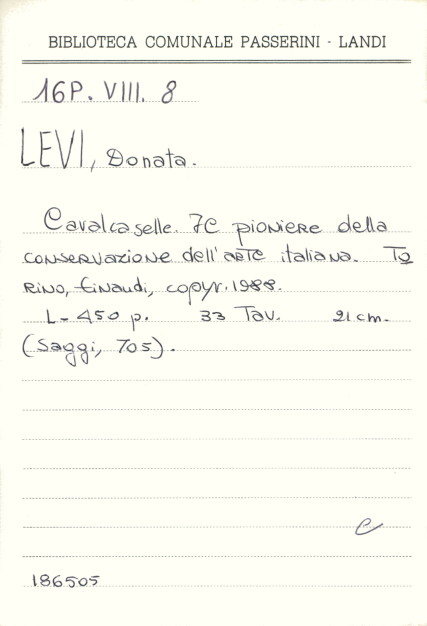 BIBLIOTECA COMUNALE PASSERINI - LANDI
16P. VIII. 8
LEVI, Donata.
Cavalcaselle. Il pioniere della
conservazione dell'arte italiana. To
rino, Einaudi, copyr. 1988.
L - 450 p. 33 Tav. 21 cm.
(Saggi, 705).
e
186505